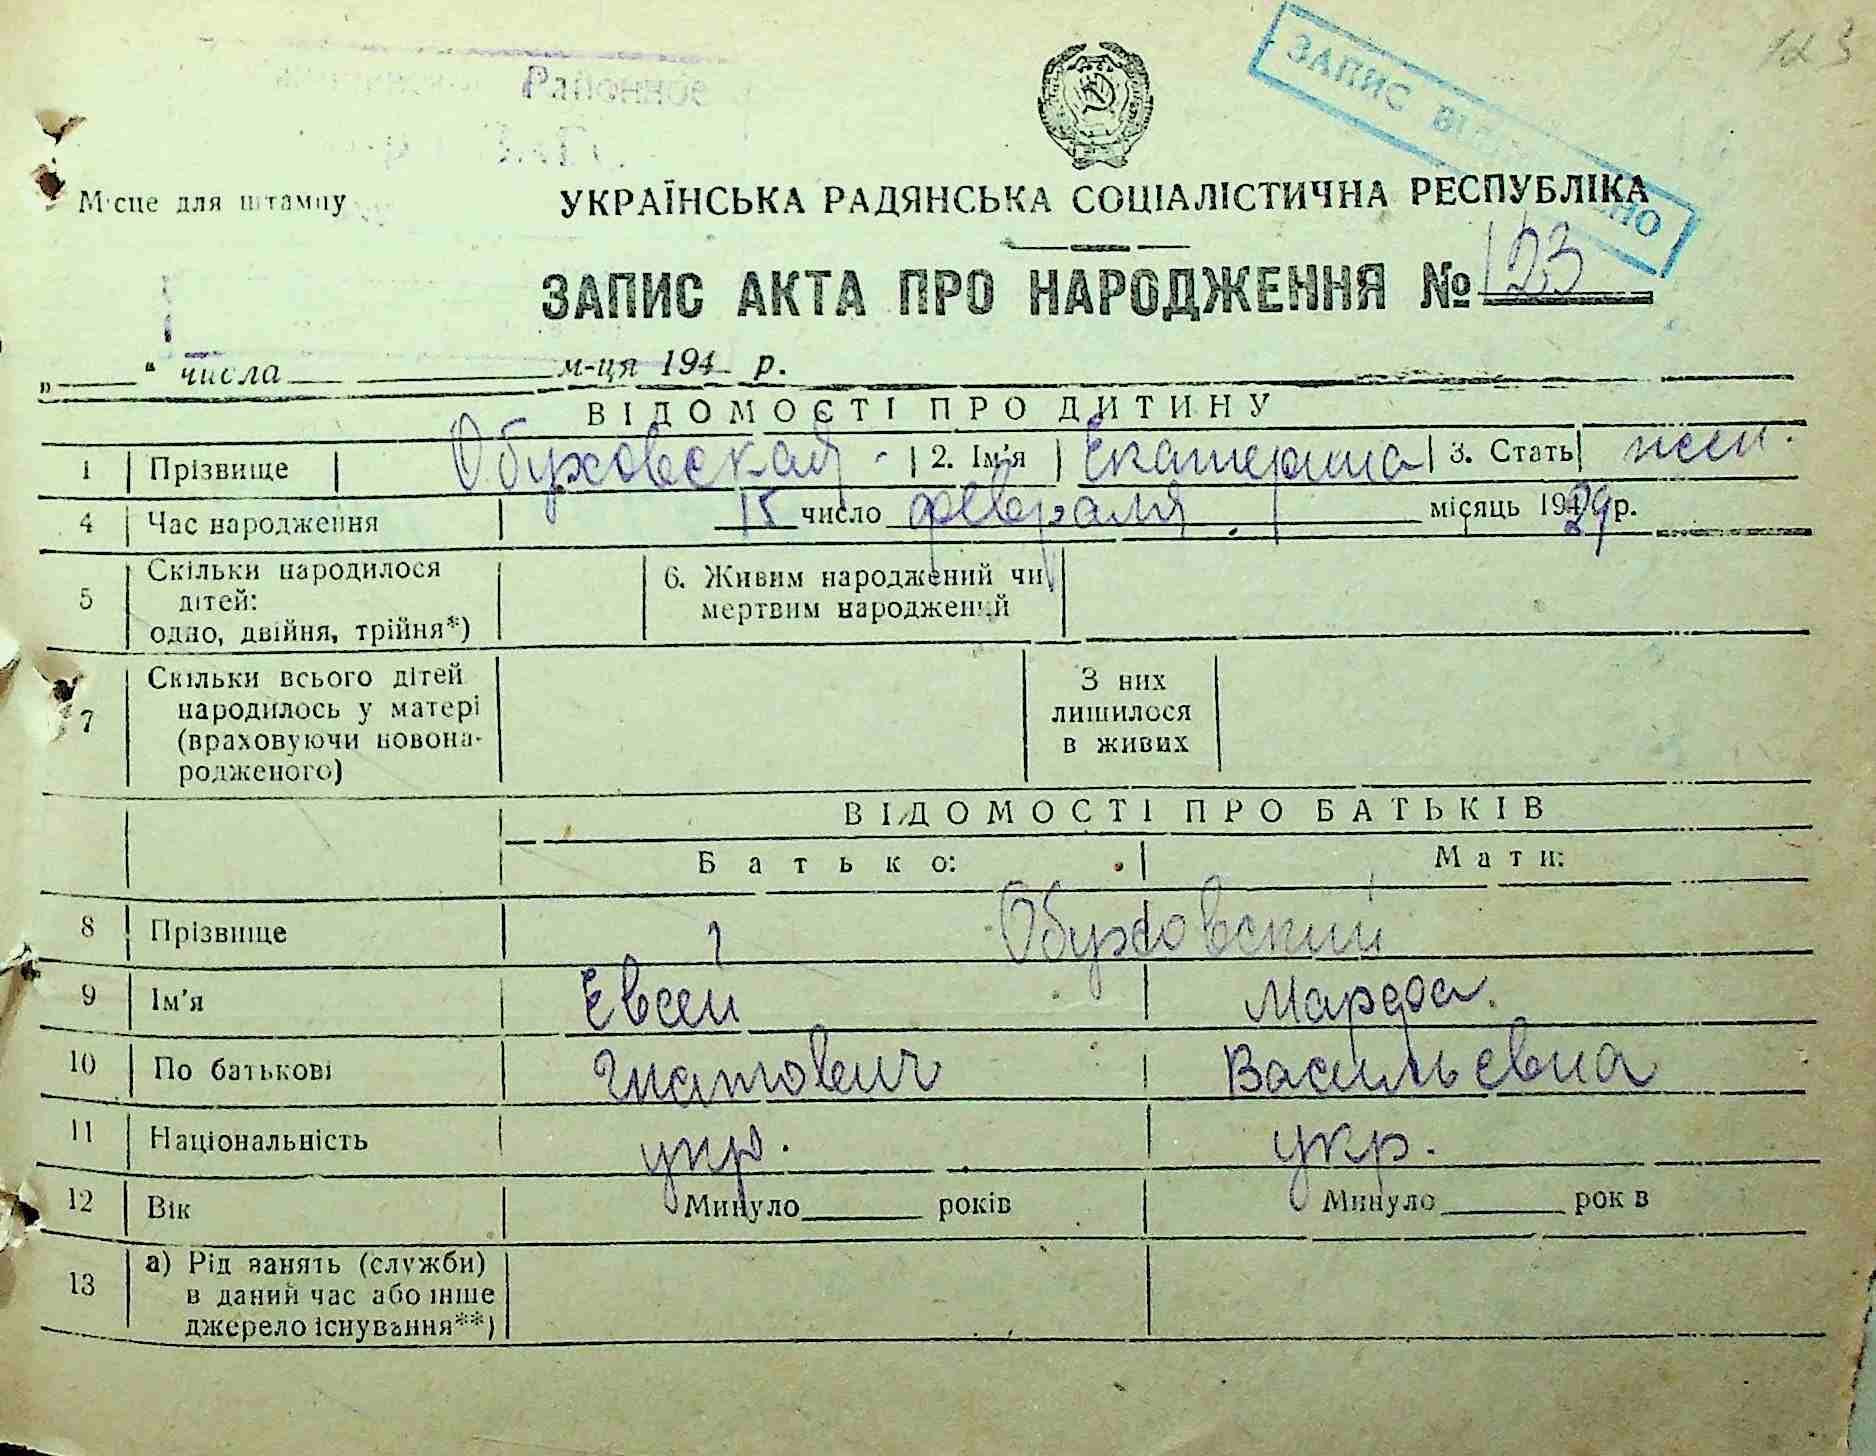 123
ЗАПИС ВІДНОВЛЕНО
Районное
Місце для штампу
УКРАЇНСЬКА РАДЯНСЬКА СОЦІАЛІСТИЧНА РЕСПУБЛІКА
ЗАПИС АКТА ПРО НАРОДЖЕННЯ № 123
„ “ числа м-ця 194 р.
ВІДОМОСТІ ПРО ДИТИНУ
1 Прізвище Обуховская 2. Ім'я Екатерина 3. Стать жен.
4 Час народження 15 число февраля місяць 1929 р.
5 Скільки народилося дітей: одно, двійня, трійня*) 6. Живим народжений чи мертвим народжений
7 Скільки всього дітей народилось у матері (враховуючи новонародженого) З них лишилося в живих
ВІДОМОСТІ ПРО БАТЬКІВ
Батько: Мати:
8 Прізвище Обуховский
9 Ім'я Евсей Марфа.
10 По батькові Игнатович Васильевна
11 Національність укр. укр.
12 Вік Минуло років Минуло років
13 а) Рід занять (служби) в даний час або інше джерело існування**)